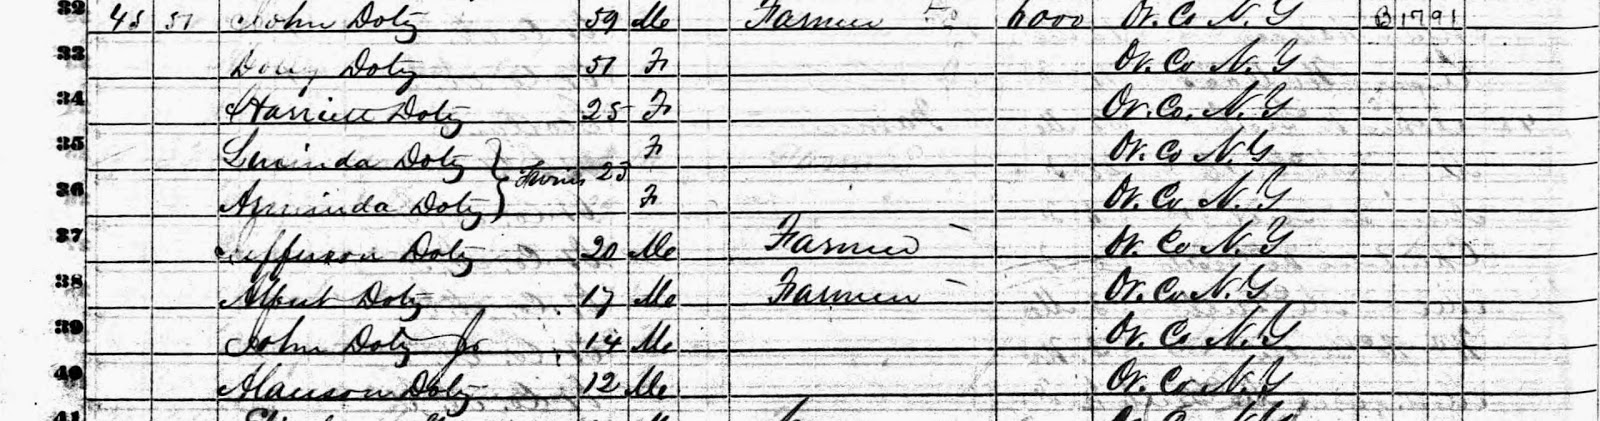 32 45 51 John Doty 59 M Farmer 6000 Or. Co N. Y B 1791
33 Dolly Doty 51 F Or. Co N. Y
34 Harriett Doty 25 F Or. Co. N. Y
35 Lucinda Doty F Or. Co N. Y
Twins 23
36 Arminda Doty F Or. Co N. Y
37 Jefferson Doty 20 M Farmer Or. Co N. Y
38 Albert Doty 17 M Farmer Or. Co N. Y
39 John Doty Jr 14 M Or. Co N. Y
40 Alanson Doty 12 M Or. Co N. Y
41